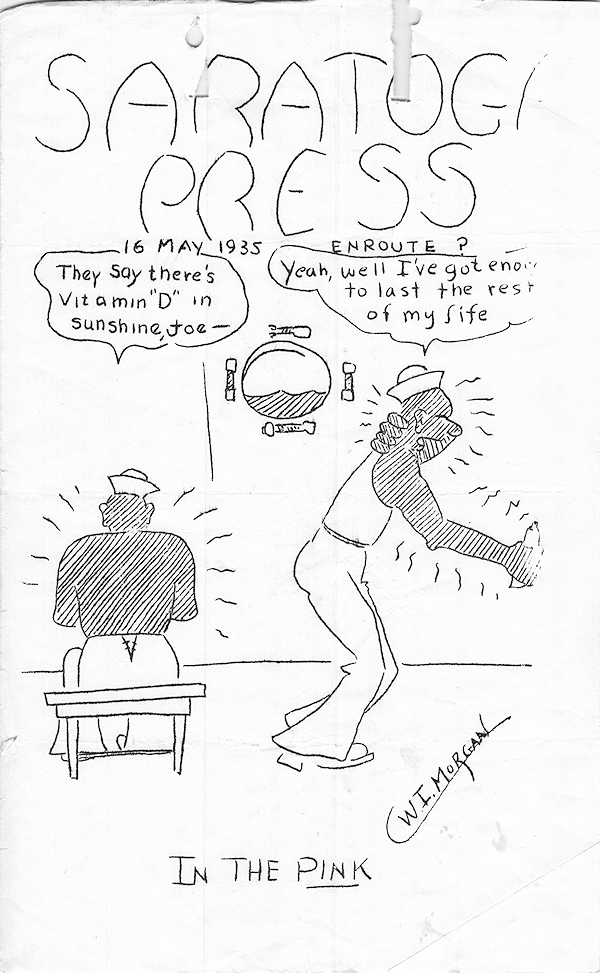 SARATOG
PRESS
16 MAY 1935 ENROUTE ?
They Say there's
Vitamin "D" in
sunshine, Joe —
Yeah, well I've got eno
to last the rest
of my life
W.I. MORGAN
IN THE PINK